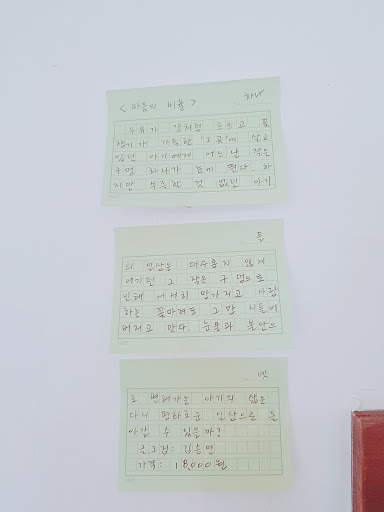 하나
< 마음의 비율 >
우유가 강처럼 흐르고 꽃
향기가 가득한 '그곳'에 살고
있던 아기에게 어느 날 작은
구멍 하나가 눈에 띈다. 하
지만 부족한 것 없던 아기
둘
의 일상을 대수롭지 않게
여기던 그 작은 구멍으로
인해 서서히 망가지고 사랑
하는 꽃마저도 그만 시들어
버리고 만다. 눈물과 불만으
셋
로 변해가는 아기의 삶은
다시 평화로운 일상으로 돌
아갈 수 있을까?
글,그림: 김승연
가격: 18,000원